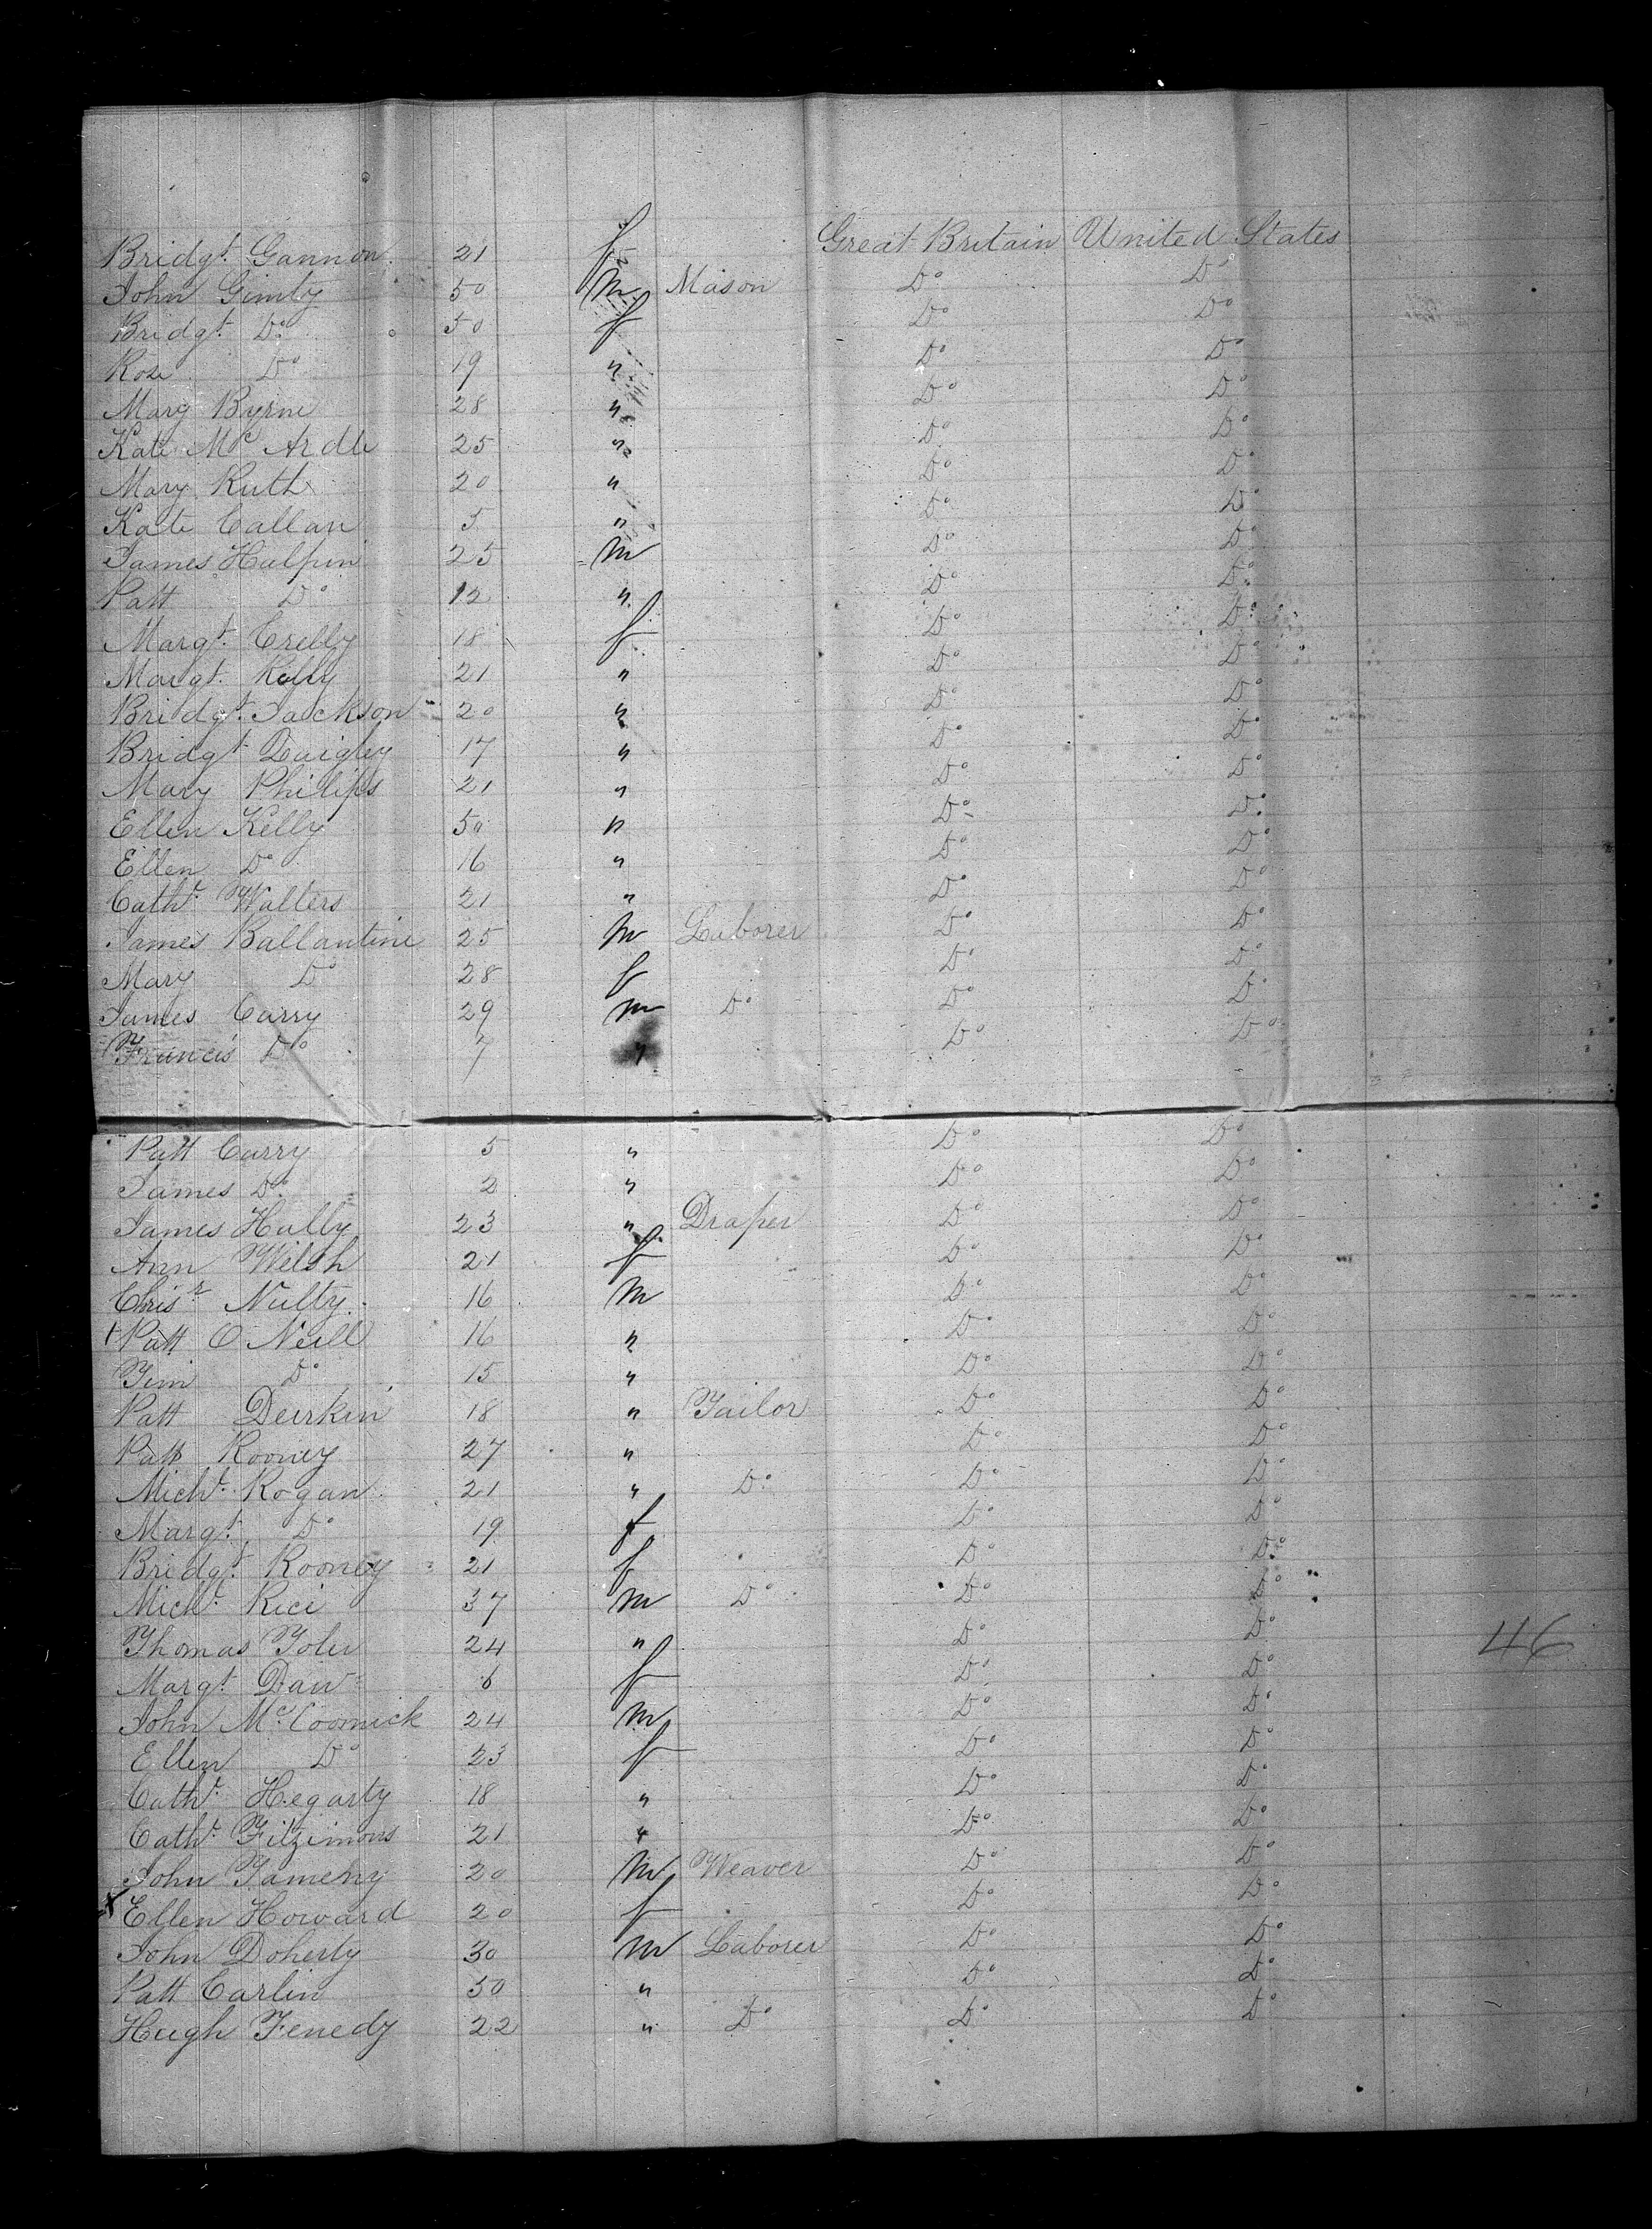 Bridgt. Gannon 21 f Great Britain United States
John Ginity 50 m Mason Do Do
Bridgt. Do 50 f Do Do
Rose Do 19 " Do Do
Marg Byrne 28 " Do Do
Kate Mc Ardle 25 " Do Do
Mary Ruth 20 " Do Do
Kate Callan 5 " Do Do
James Halpin 25 m Do Do
Patt Do 12 " Do Do
Margt. Crelly 18 f Do Do
Margt. Kelly 21 " Do Do
Bridgt. Jackson 20 " Do Do
Bridgt Quigley 17 " Do Do
Mary Philips 21 " Do Do
Ellen Kelly 50 " Do Do
Ellen Do 16 " Do Do
Cathe. Walters 21 " Do Do
James Ballantine 25 m Laborer Do Do
Mary Do 28 f Do Do
James Carry 29 m Do Do Do
Francis Do 7 " Do Do
Patt Carry 5 " Do Do
James Do 2 " Do Do
James Hally 23 " Draper Do Do
Ann Welsh 21 f Do Do
Chrisr. Nulty 16 m Do Do
Patt O Neill 16 " Do Do
Tim Do 15 " Do Do
Patt Durkin 18 " Tailor Do Do
Patt Rooney 27 " Do Do
Michl. Rogan 21 " Do Do Do
Margt. Do 19 f Do Do
Bridgt. Rooney 21 f Do Do
Michl. Rice 37 m Do Do Do
Thomas Toler 24 " Do Do
Margt. Daw 6 f Do Do
John Mc Coomick 24 m Do Do
Ellen Do 23 f Do Do
Cathe. Hegarty 18 " Do Do
Cathe. Fitzimons 21 " Do Do
John Tameny 20 m Weaver Do Do
x Ellen Howard 20 f Do Do
John Doherty 30 m Laborer Do Do
Patt Carlin 50 " Do Do
Hugh Fenedy 22 " Do Do Do
46